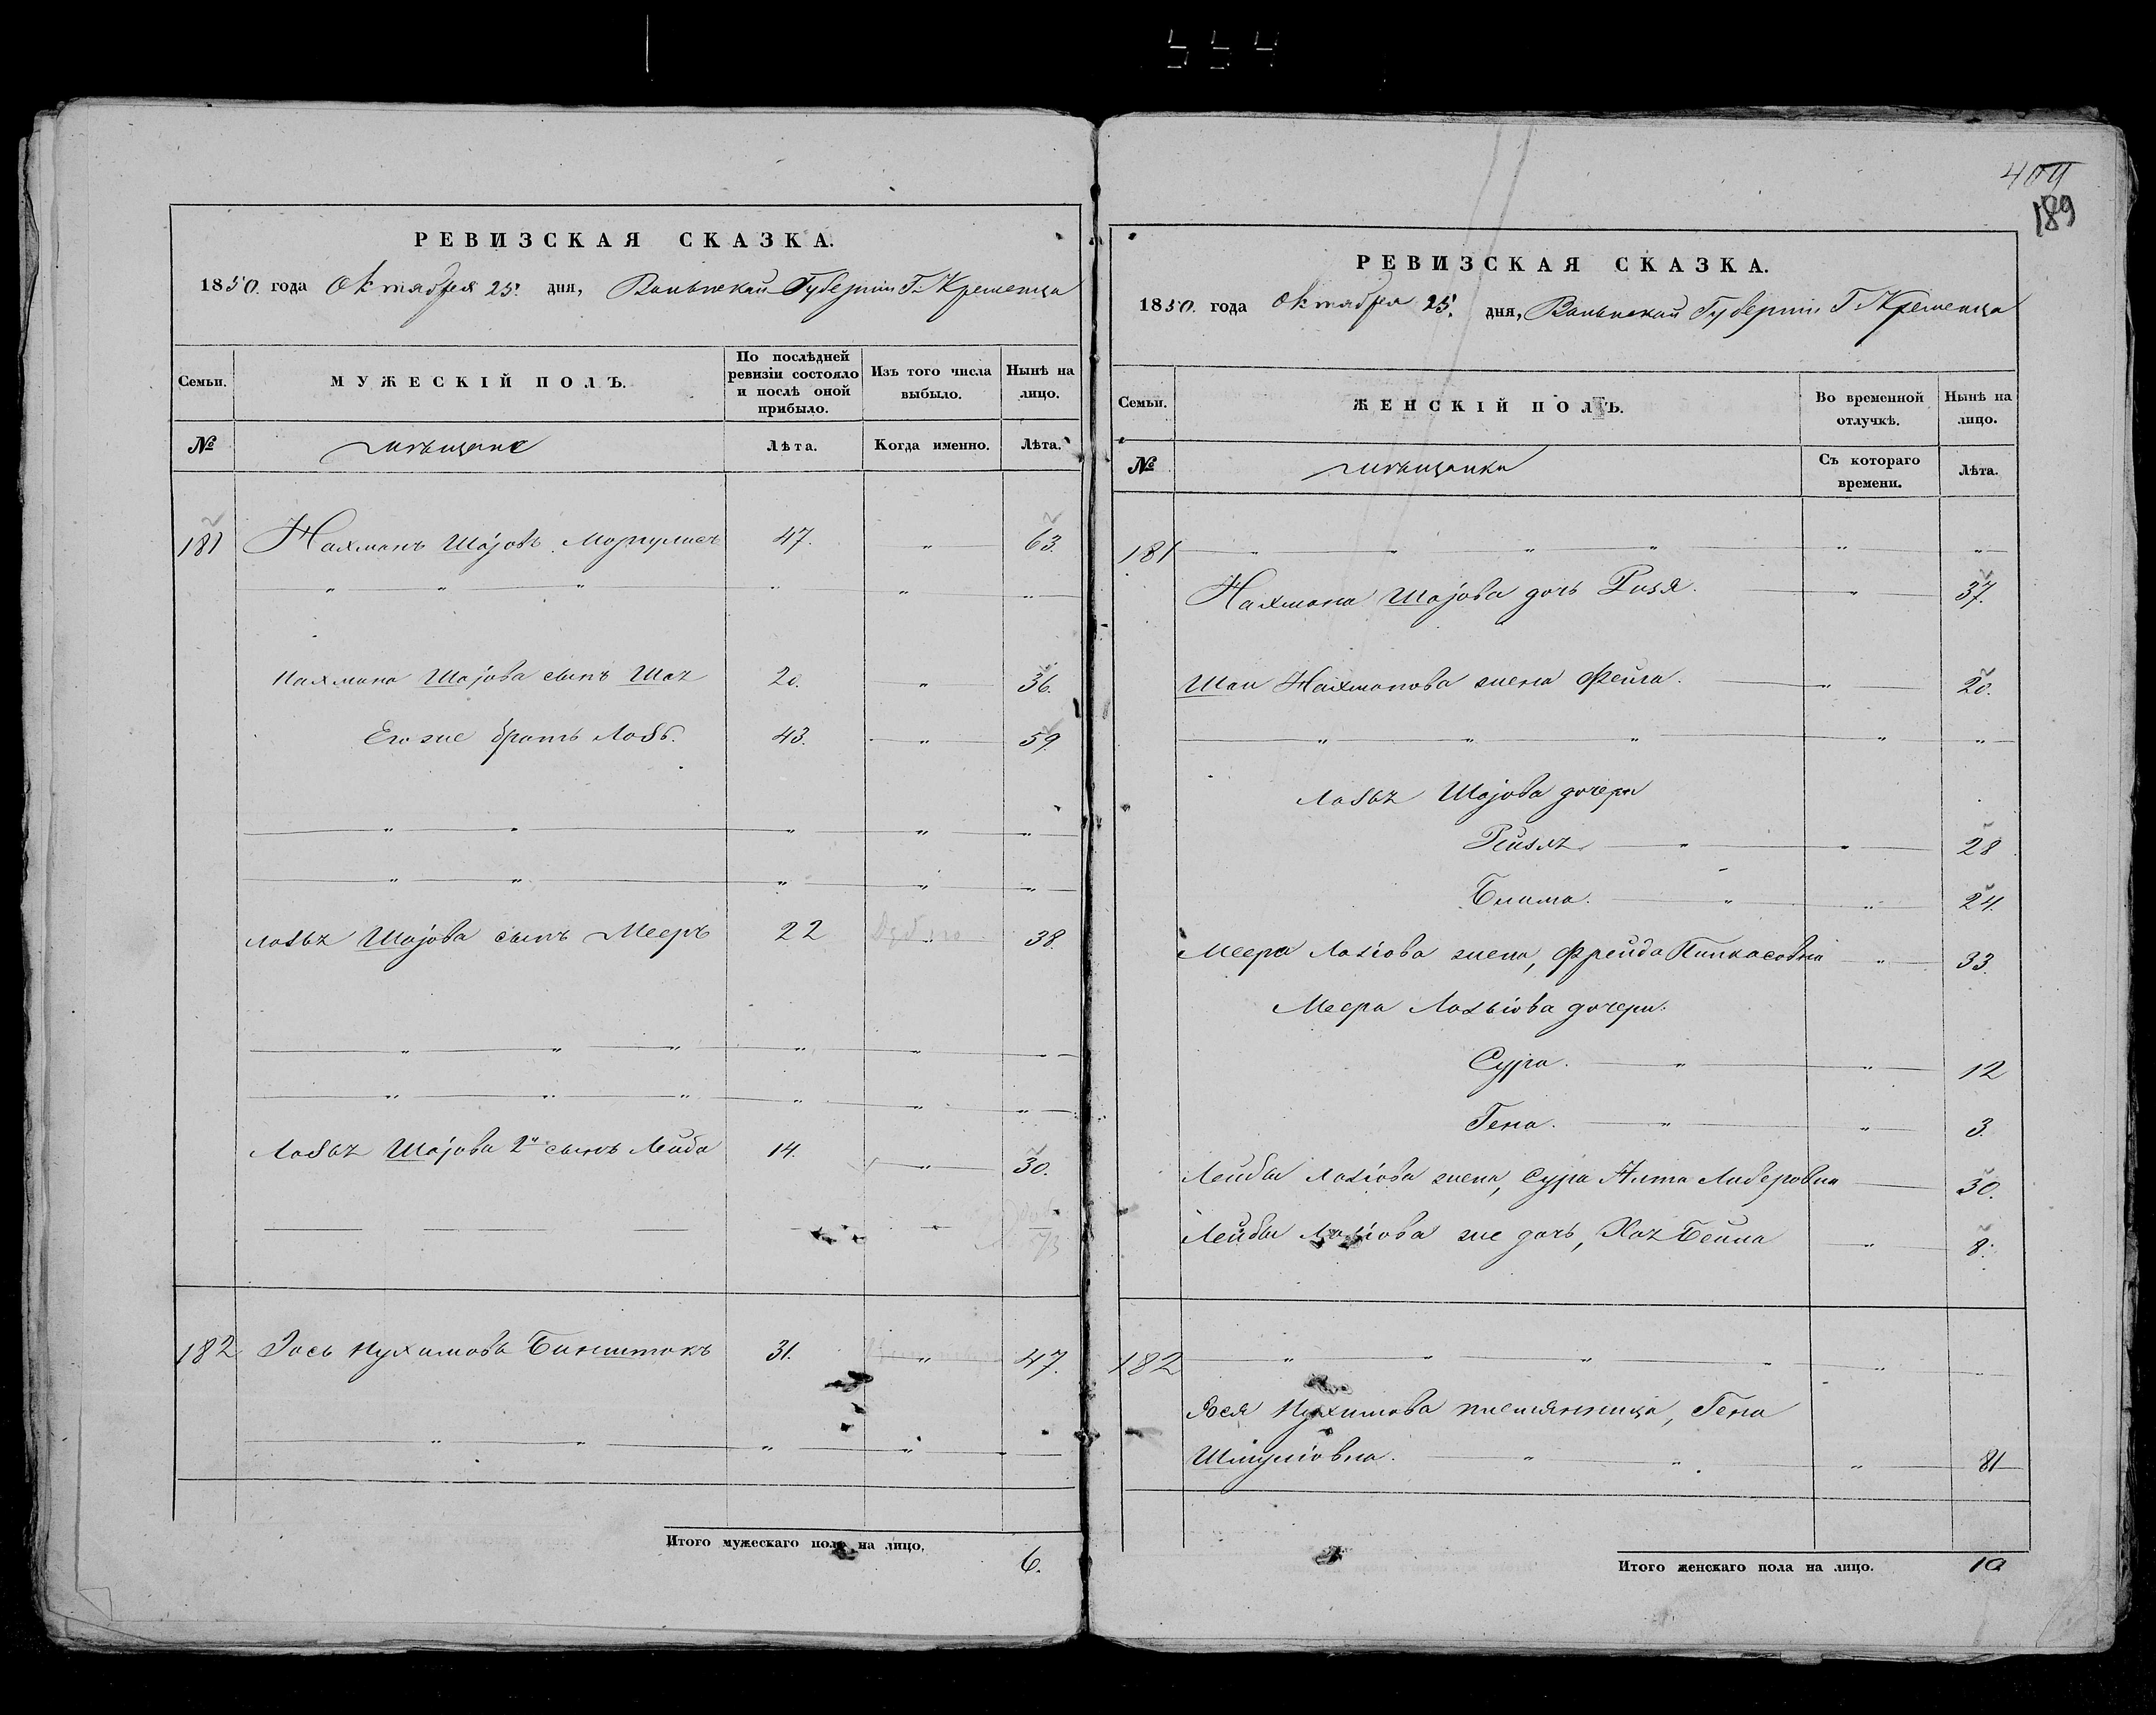 554
РЕВИЗСКАЯ СКАЗКА.
1850. года Октября 25. дня, Волынской Губернiи Г. Кременца
Семьи.
МУЖЕСКІЙ ПОЛЪ.
По послѣдней ревизіи состояло и послѣ оной прибыло.
Изъ того числа выбыло.
Нынѣ на лицо.
№
мѣщане
Лѣта.
Когда именно.
Лѣта.
181 Нахманъ Шаjовъ Моргулисъ 47. " 63.
Нахмана Шаjова сынъ Шая 20. " 36.
Его же братъ 43. " 59
Шаjова сынъ Мееръ 22 " 38.
Шаjова 2й сынъ Лейба 14. " 30.
182 Iось Нухимовъ Бинштокъ 31. " 47.
Итого мужескаго пола на лицо. 6.
404
189
РЕВИЗСКАЯ СКАЗКА.
1850. года Октября 25. дня, Волынской Губернiи Г. Кременца
Семьи.
ЖЕНСКІЙ ПОЛЪ.
Во временной отлучкѣ.
Нынѣ на лицо.
№
мѣщанки
Съ котораго времени.
Лѣта.
181
Нахмана Шаjова дочь Рися. " 37.
Шаи Нахманова жена Фейга. " 20.
Шаjова дочери
Рейзя " 28
Блима. " 24.
Меера жена, Фрейда Пинкасовна " 33.
Меера дочери.
Сура. " 12
Гена. " 3.
Лейбы жена, Сура Алта Либеровна 30.
Лейбы же дочь, Хая Бейла " 8.
182
Нухимова племянница, Гена
Шмулiовна. " 81
Итого женскаго пола на лицо. 10